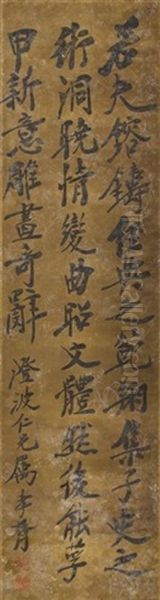 若夫鎔鑄經典之範翔集子史之
術洞曉情變曲昭文體然後能孚
甲新意雕畫奇辭 澄波仁兄屬孝胥